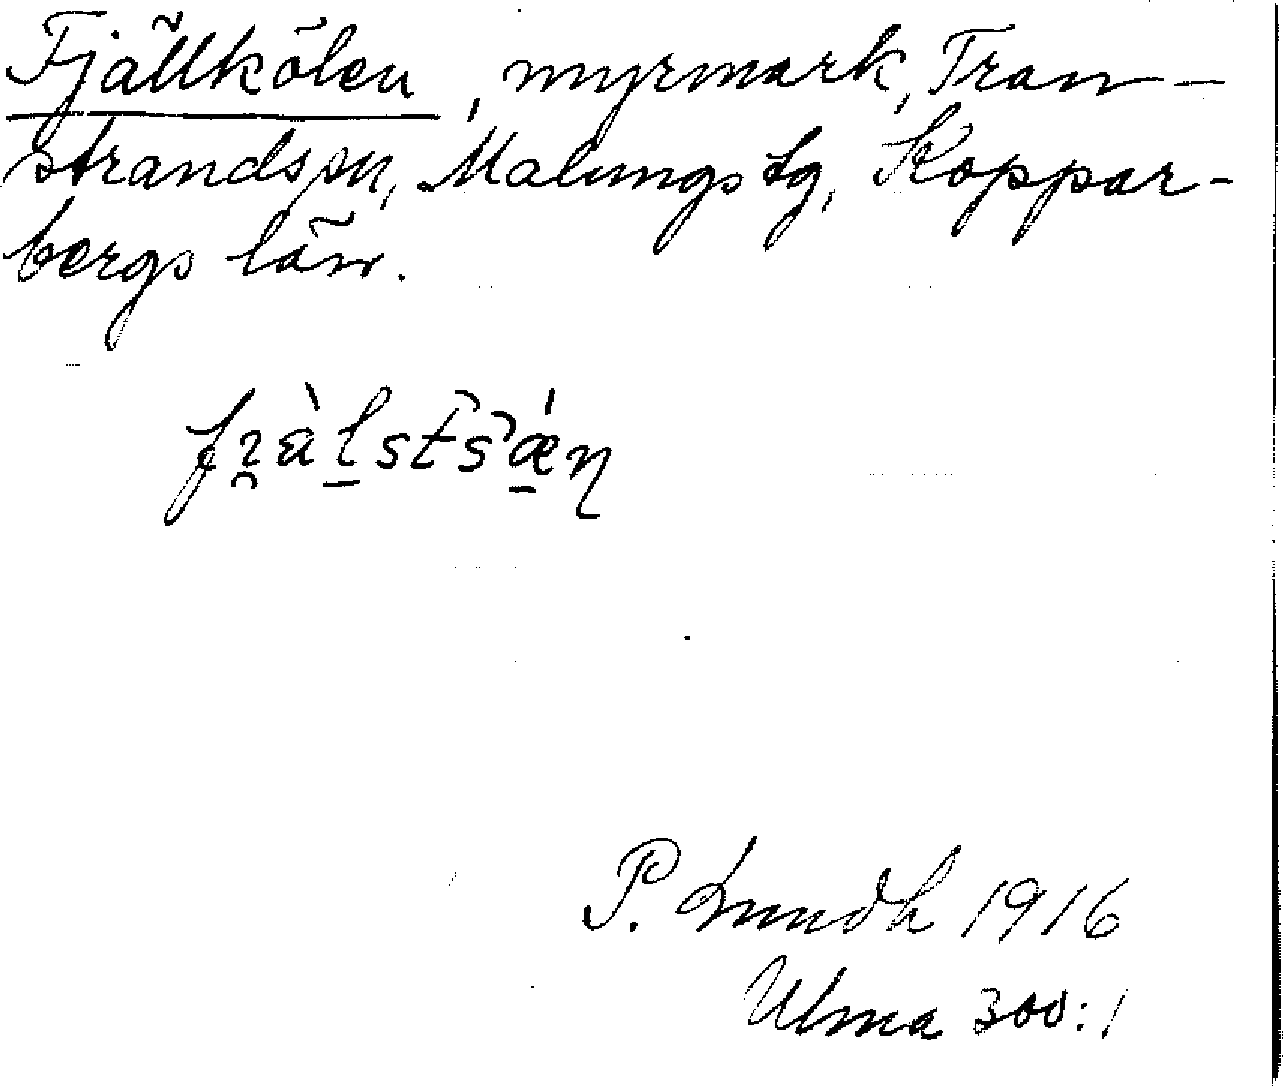 Fjällkölen, myrmark, Tran-
strandspn, Malungs tg, Koppar-
bergs län.
P. Lundh 1916
Ulma 300:1